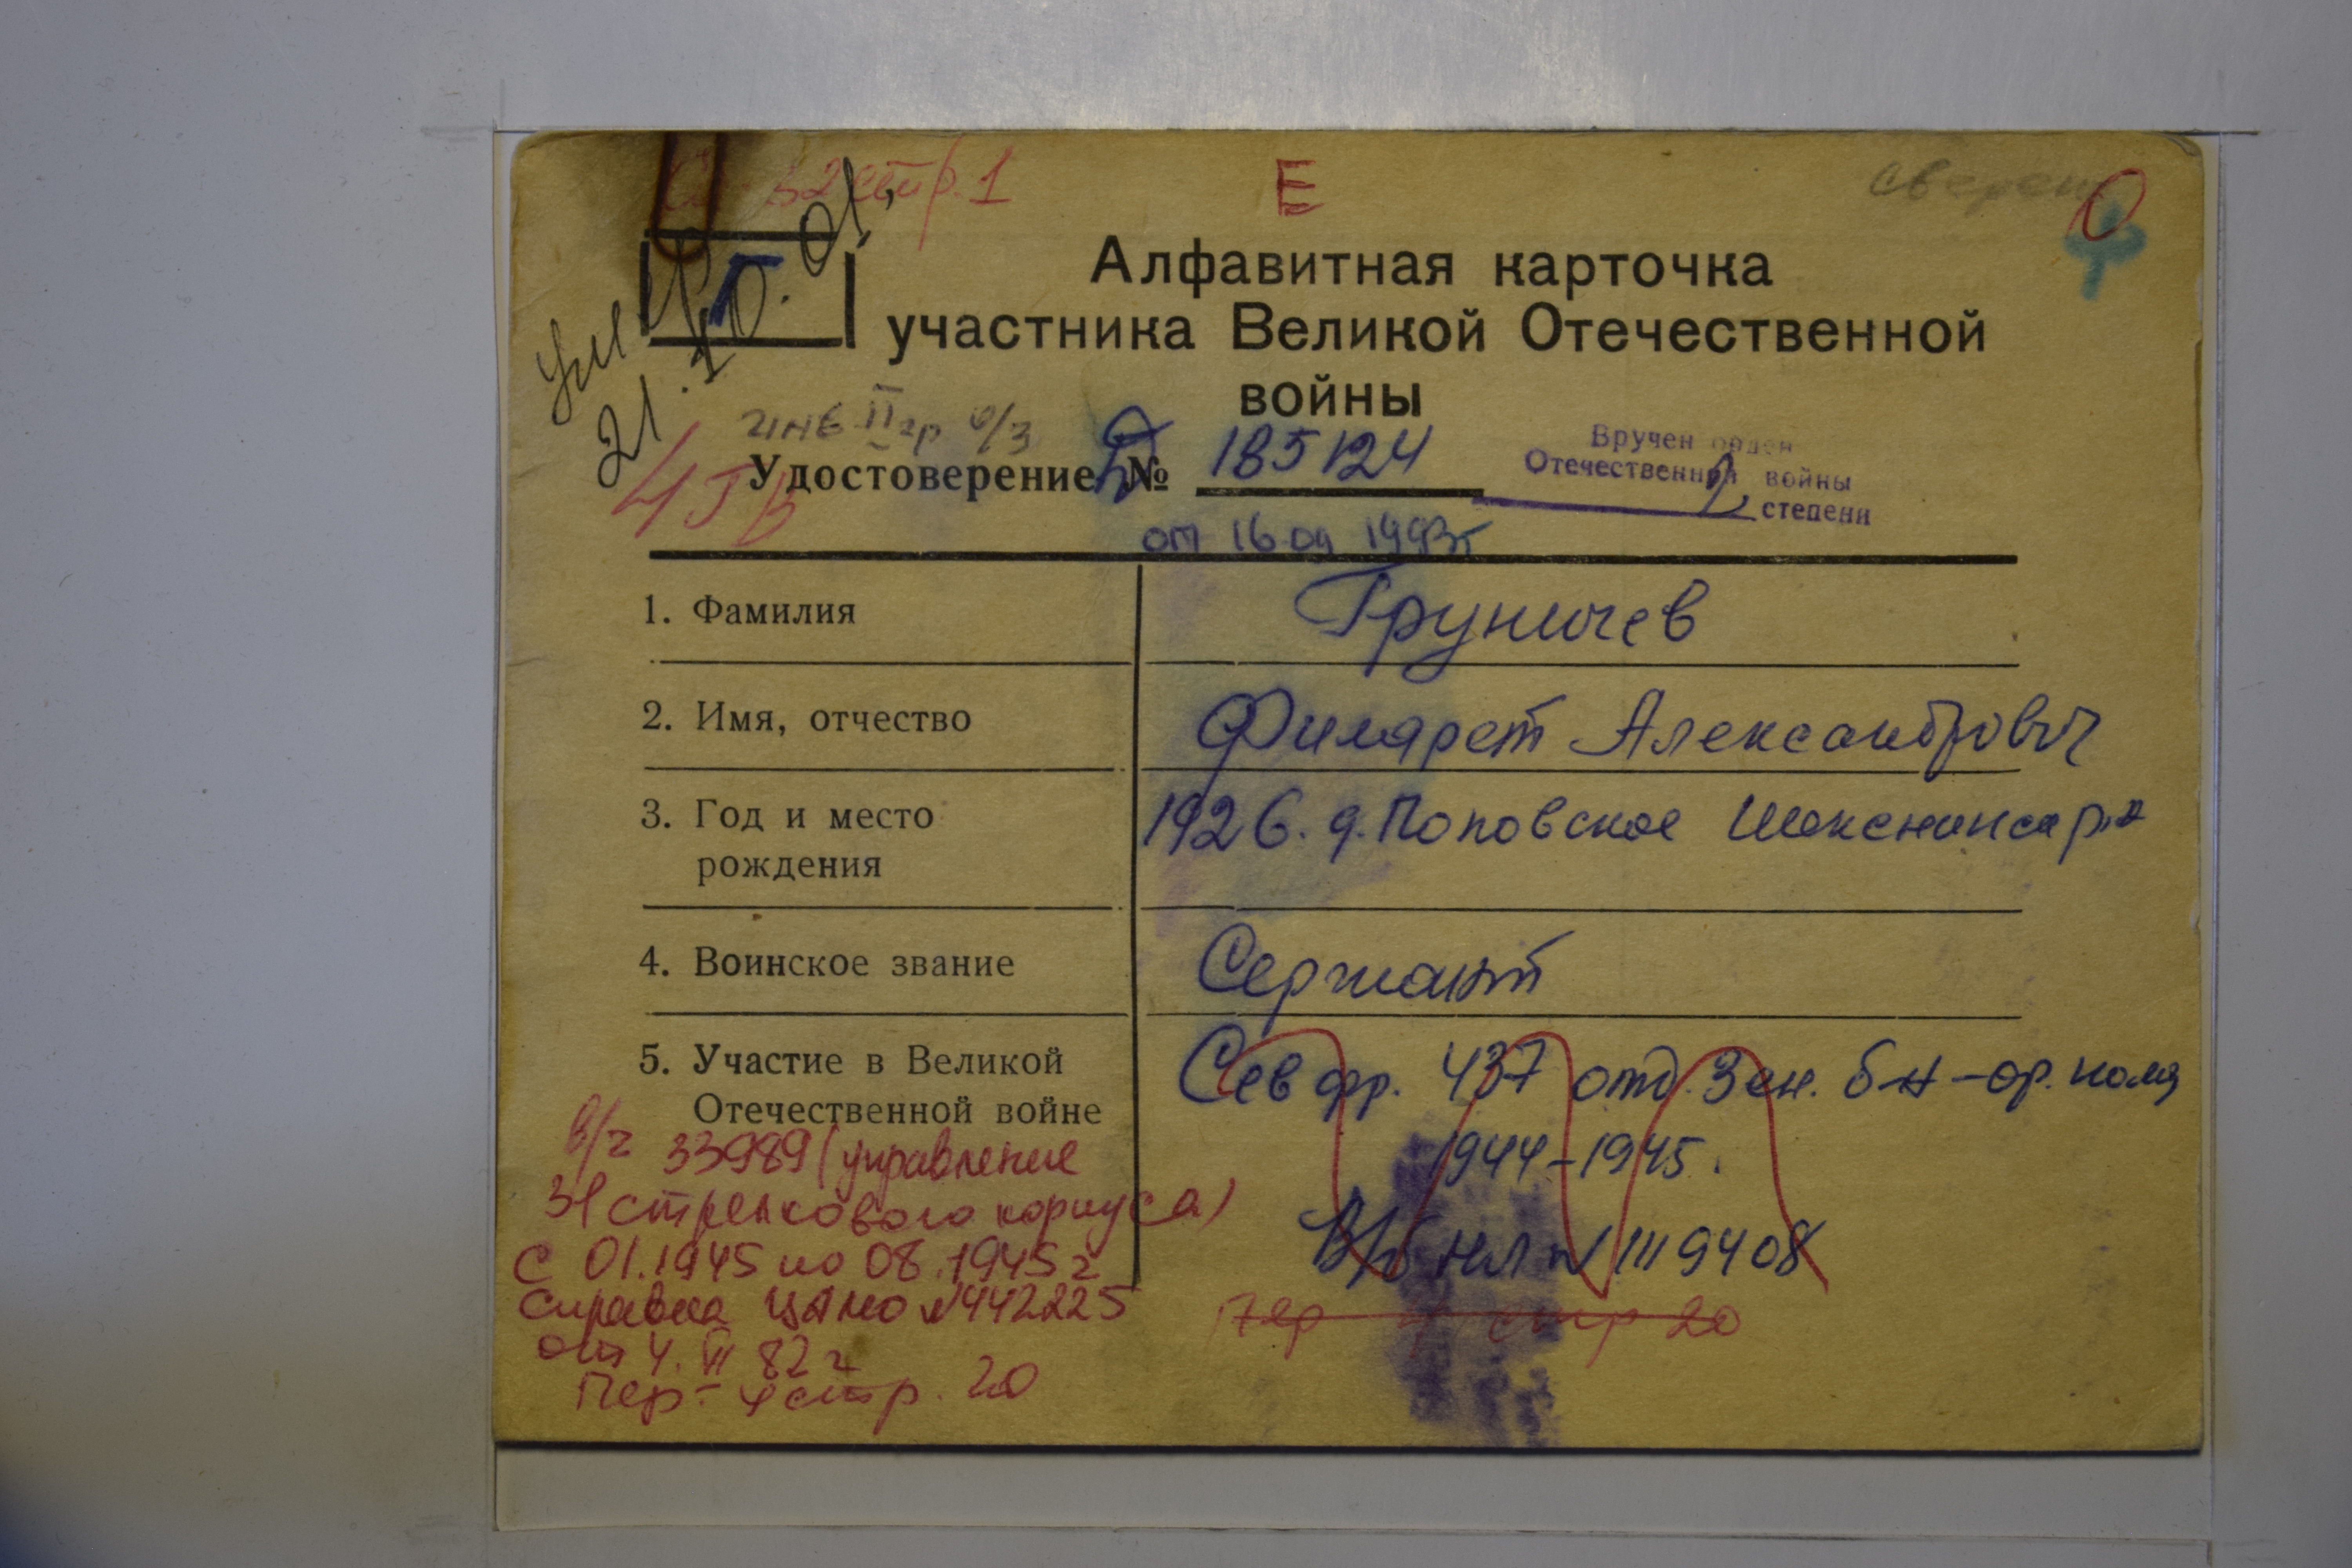 стр. 1
Е
О
Алфавитная карточка
участника Великой Отечественной
войны
Г
21.10.01.
инв II гр
Удостоверение № 185124
Вручен орден
Отечественной войны
степени
от 16 09 1993г
1. Фамилия
Груничев
2. Имя, отчество
Филярет Александрович
3. Год и место
рождения
1926. д. Поповское Шекснинск р.а
4. Воинское звание
Сержант
5. Участие в Великой
Отечественной войне
Сев фр. 437 отд. Зен. б-н - ор. ном
1944-1945.
В/б нл № 1119408
в/ч 33989 (управление
31 стрелкового корпуса)
с 01.1945 по 08.1945г
Справка ЦАМО №442225
от 4. VI 82г
стр 20
Пер. - 4 стр. 20